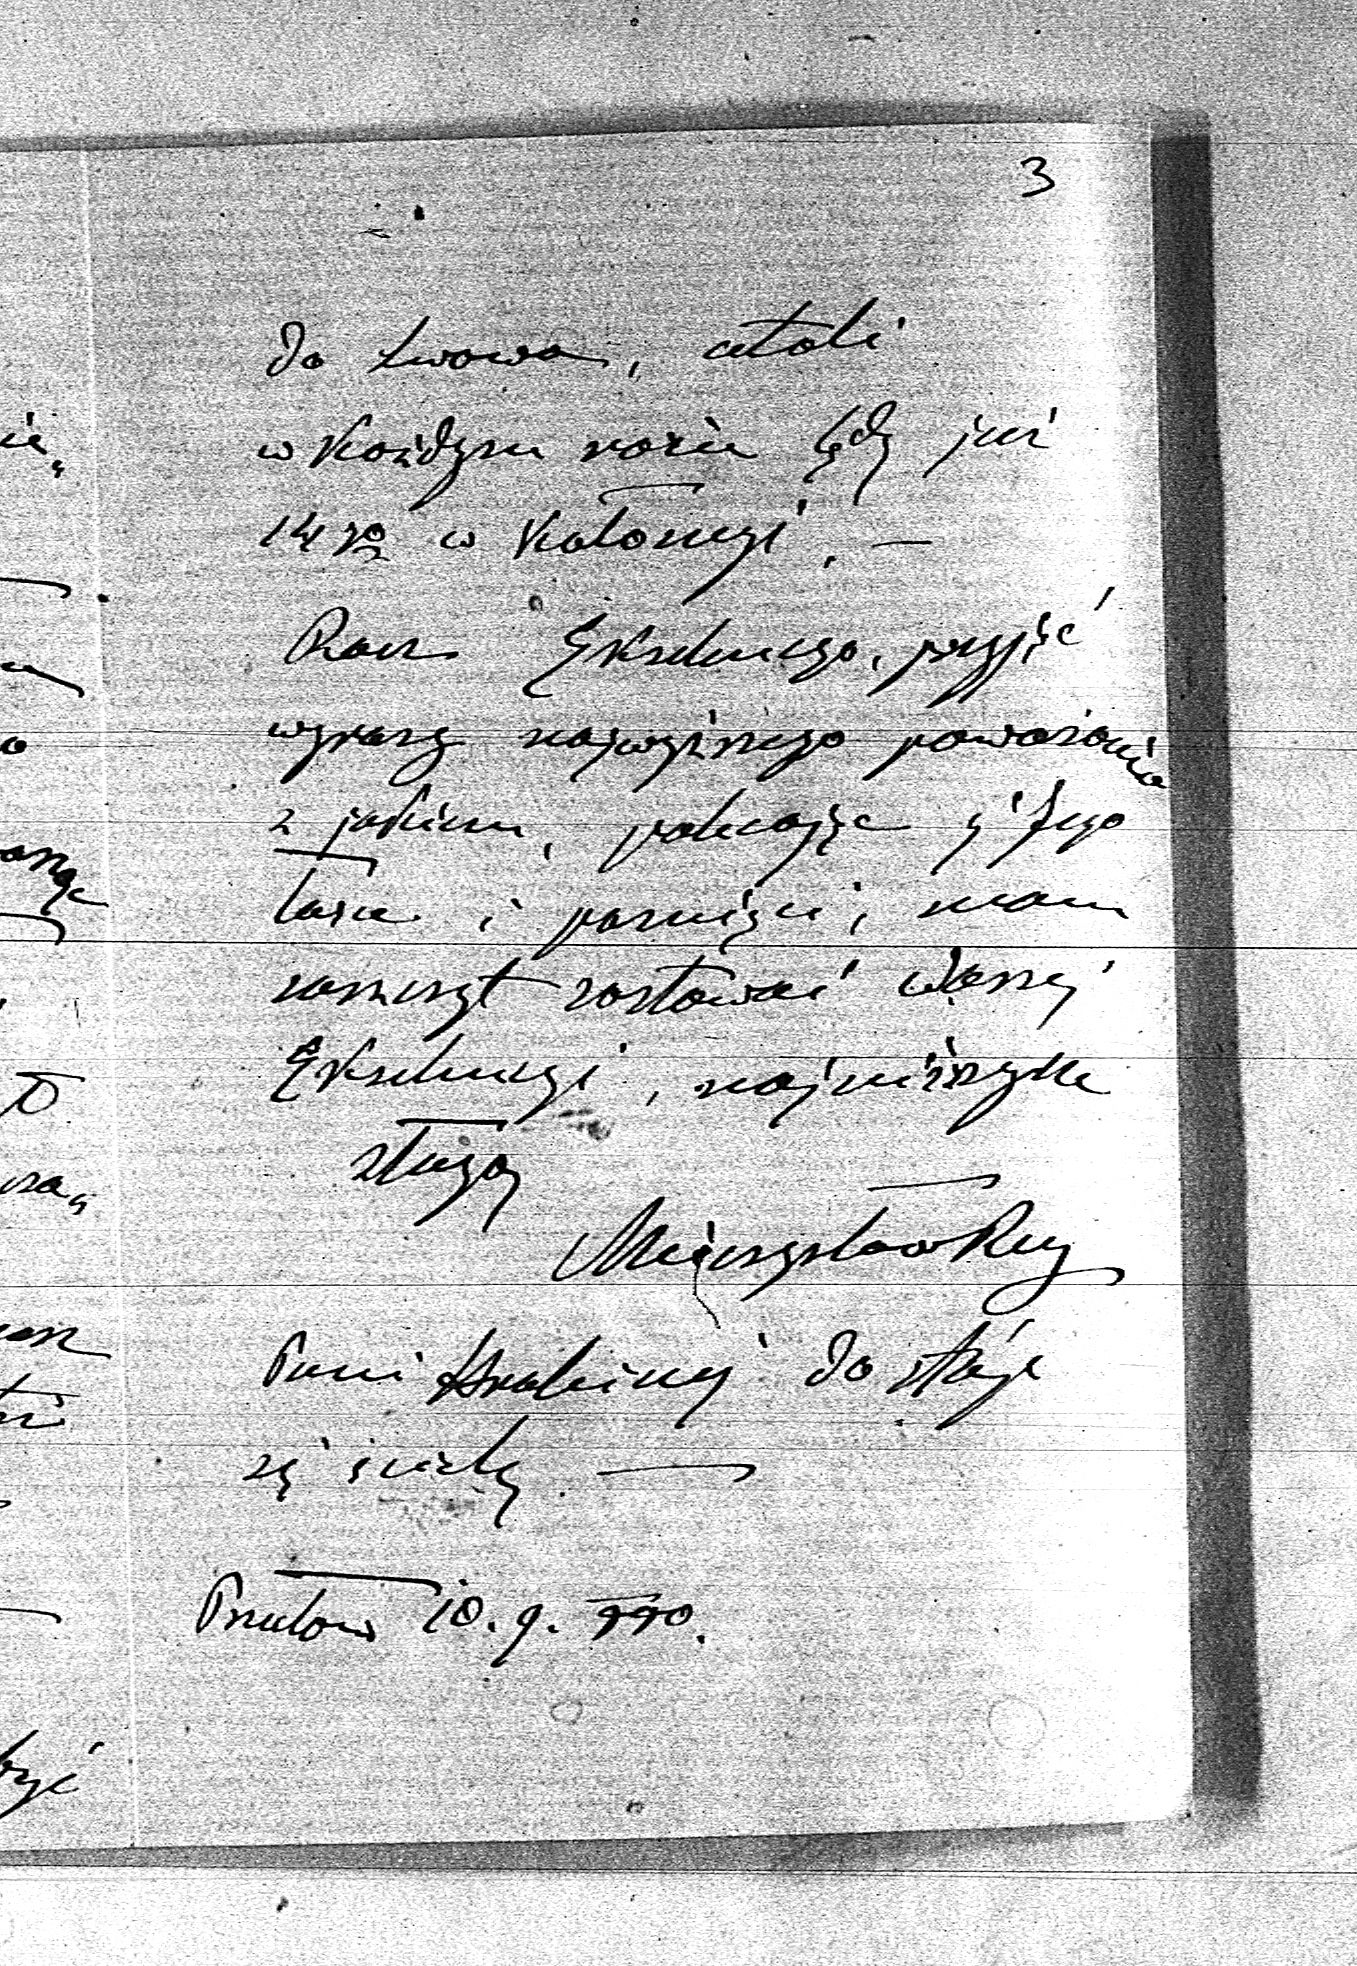 3
do Lwowa, atoli
w każdym razie będę już
14go w Kołomyi. —
Racz Ekscelencyo, przyjąć
wyrazy najwyższego poważania
z jakiem, polecając się Jego
łasce i pamięci, mam
zaszczyt zostawać Waszej
Ekscelencyi, najniższym
sługą
Mieczysław Rey
Pani Hrabinej do stóp
się ścielę. —
10. 9.
być